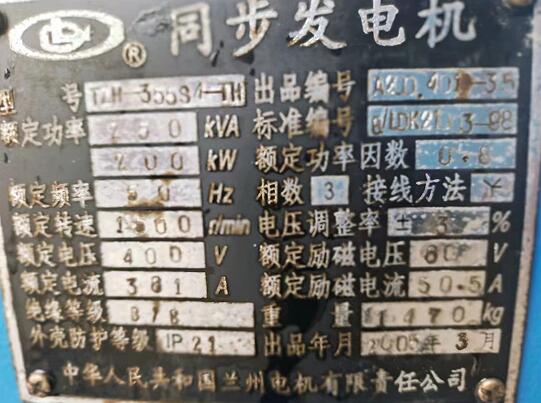 ® 同步发电机
型 号 TZH-355S4-TH 出品编号
额定功率 250 kVA 标准编号
200 kW 额定功率因数 0.8
额定频率 50 Hz 相数 3 接线方法 Y
额定转速 1500 r/min 电压调整率 ± 3 %
额定电压 400 V 额定励磁电压 80 V
额定电流 361 A 额定励磁电流 50.5 A
绝缘等级 重 量 1470 kg
外壳防护等级 IP21 出品年月 2005年3月
中华人民共和国兰州电机有限责任公司